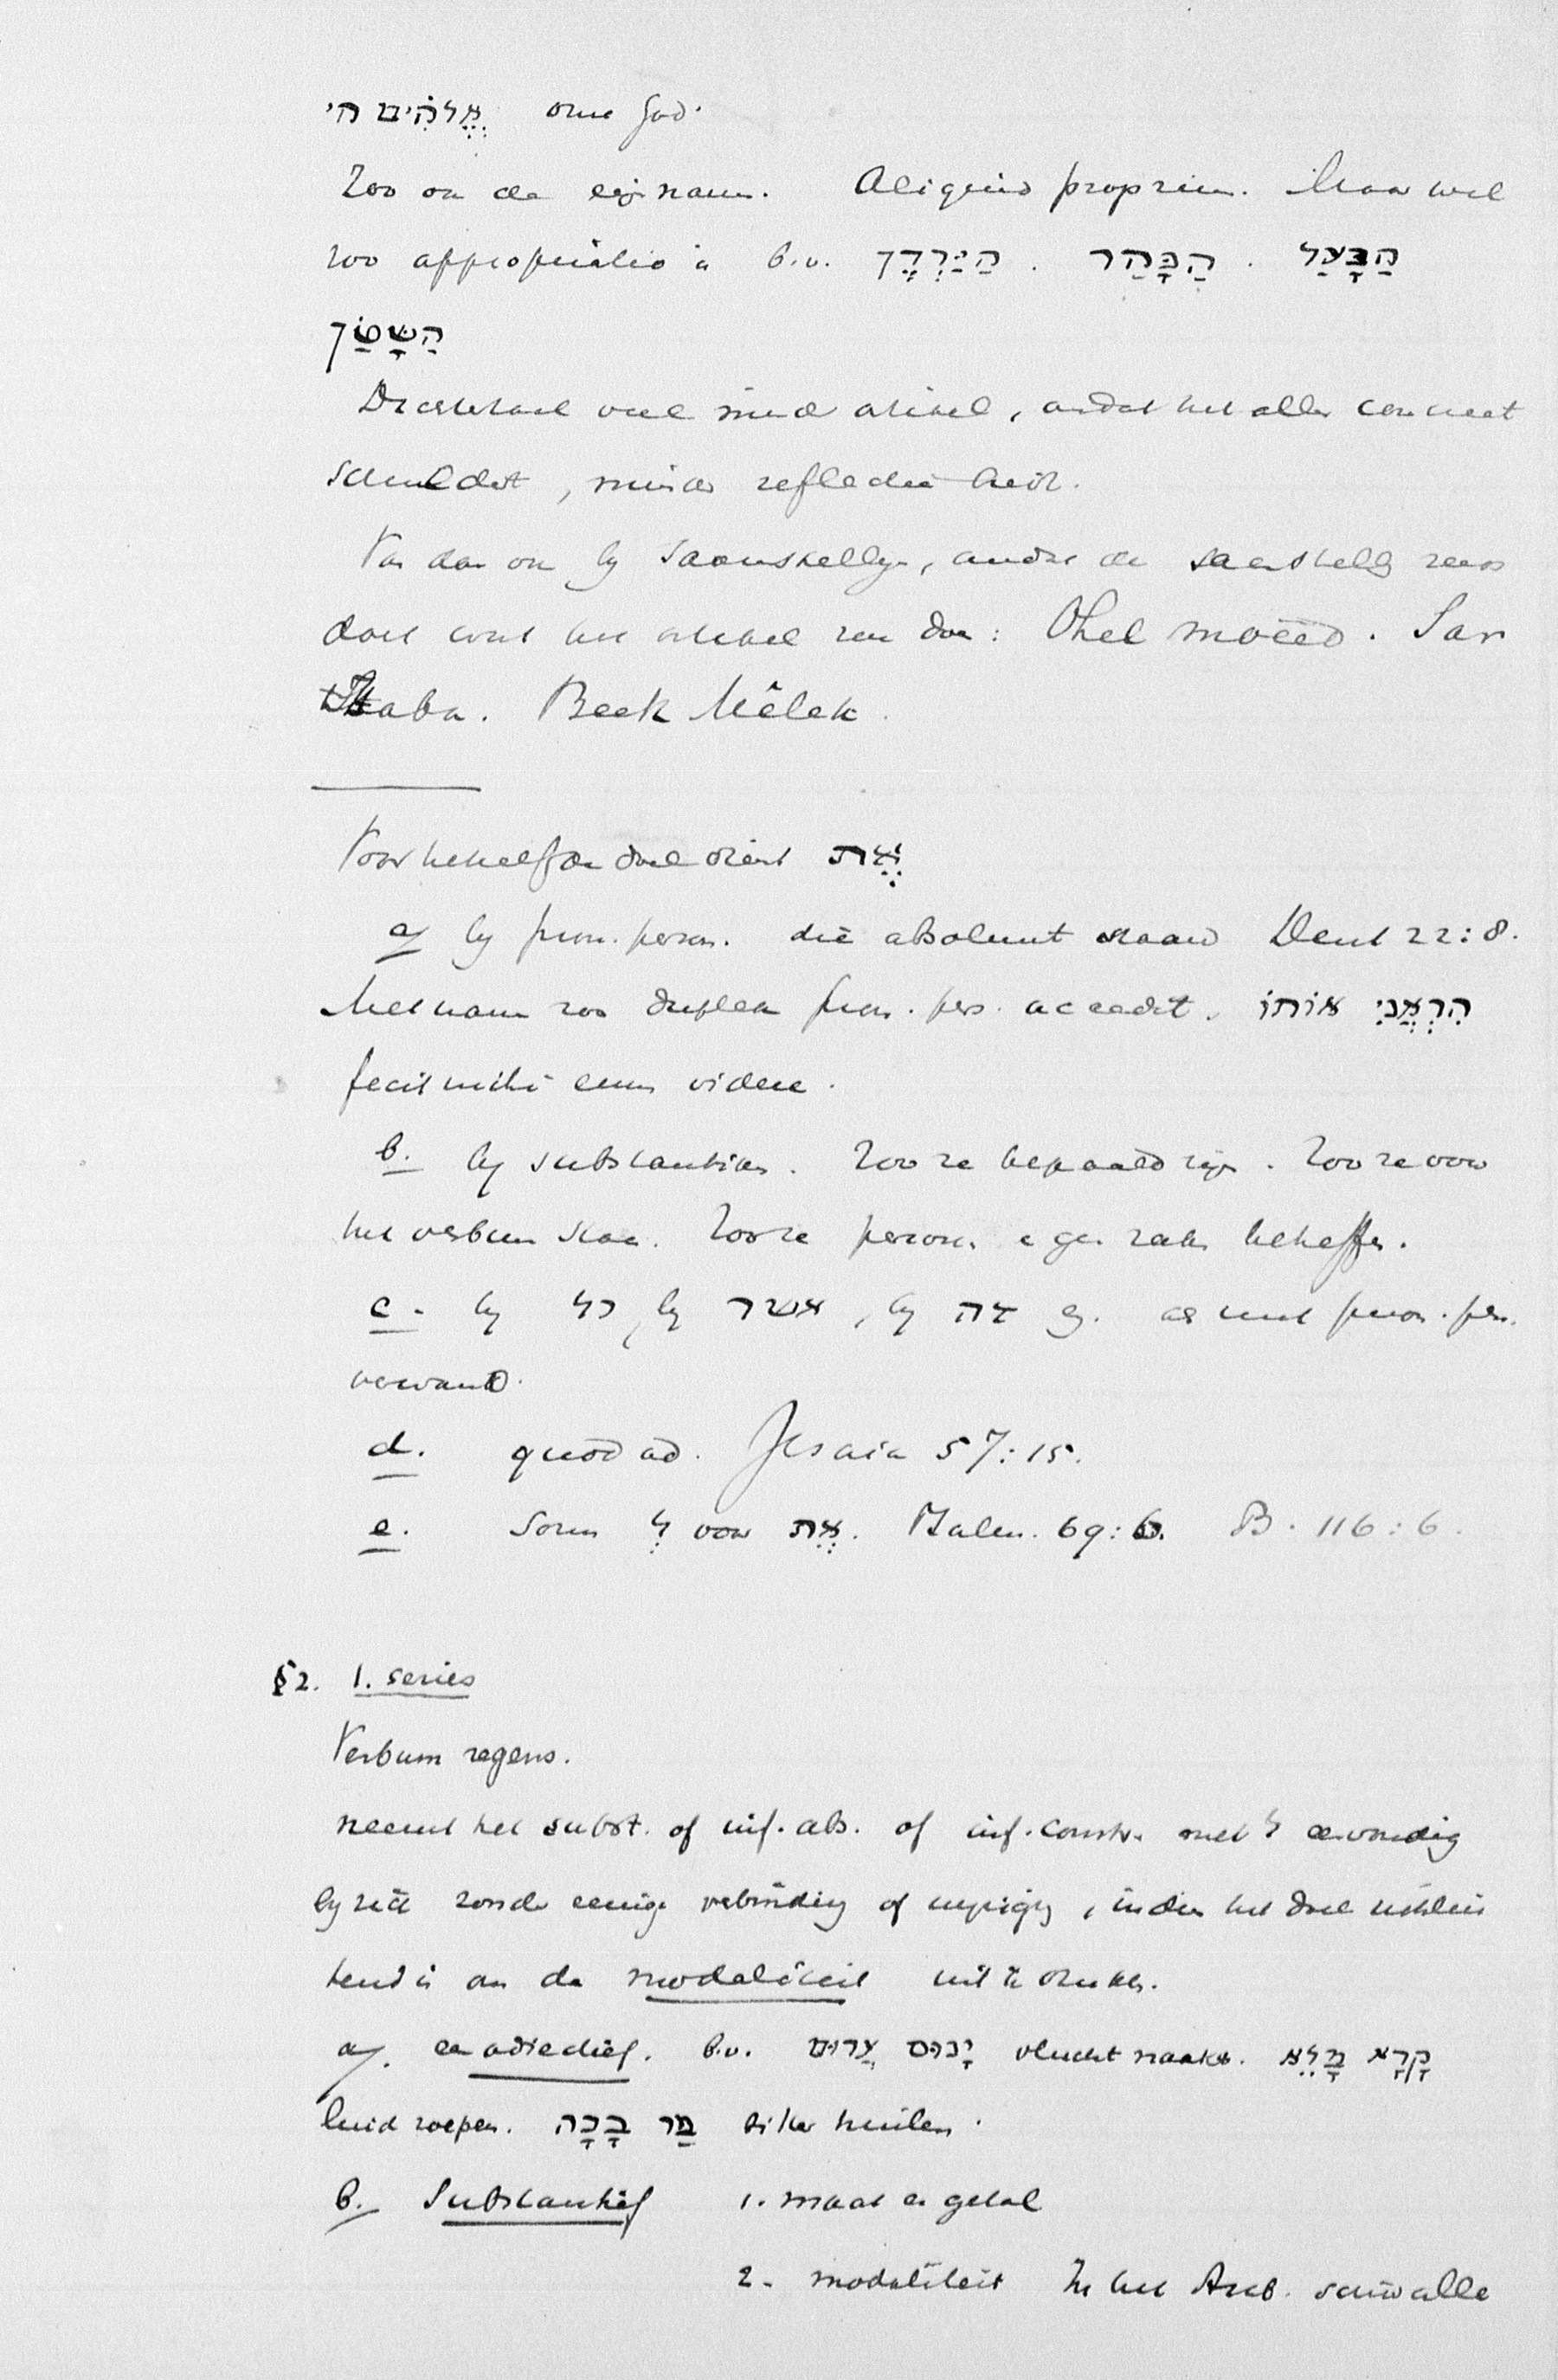 אֱלֹהִים חי onze God.
Zoo ook de eigennaam. Aliquid proprium. Maar wel
zoo appropriatio is b.v. הַיַּרְדֵּן . הַכָּהַר . הַבָּעַל
הַשָּׂטָן
Dichtertaal veel minder artikel, omdat het alles concreet
schildert, minder reflectie heeft.
Van daar ook bij samenstelling, omdat de samenstelling reeds
doet wat het artikel zou doen: Ohel moëed. Sar
Zaba. Beek Mêlek.
Voor betreffende doel dient אֶת
a) bij pron. person. die absoluut staan Deut 22:8.
Met name zoo duplex pron. pers. accedit. הִרְאַנִי אוֹתוֹ
fecit mihi eum videre.
b. bij substantiva. Zoo ze bepaald zijn. Zoo ze voor
het verbum staan. Zoo ze personen en geen zaken betreffen.
c. bij כל, bij אשר, bij זה als met pron. pers.
verwant.
d. quod ad. Jesaia 57:15.
e. Soms לְ voor אֶת. Psalm. 69:6. Ps. 116:6.
§2. 1. series
Verbum regens.
neemt het subst. of inf. abs. of inf. constr. met ל eenvoudig
bij zich zonder eenige verbinding of wijziging, indien het doel uitsluitend
is om de modaliteit uit te drukken.
a). een adiectief. b.v. יָנוּס עָרוֹם vlucht naakt. קָרָא מָלֵא
luid roepen. מַר בָּכָה bitter huilen.
b. Substantief 1. maat en getal
2. modaliteit In het Arab. schier alle